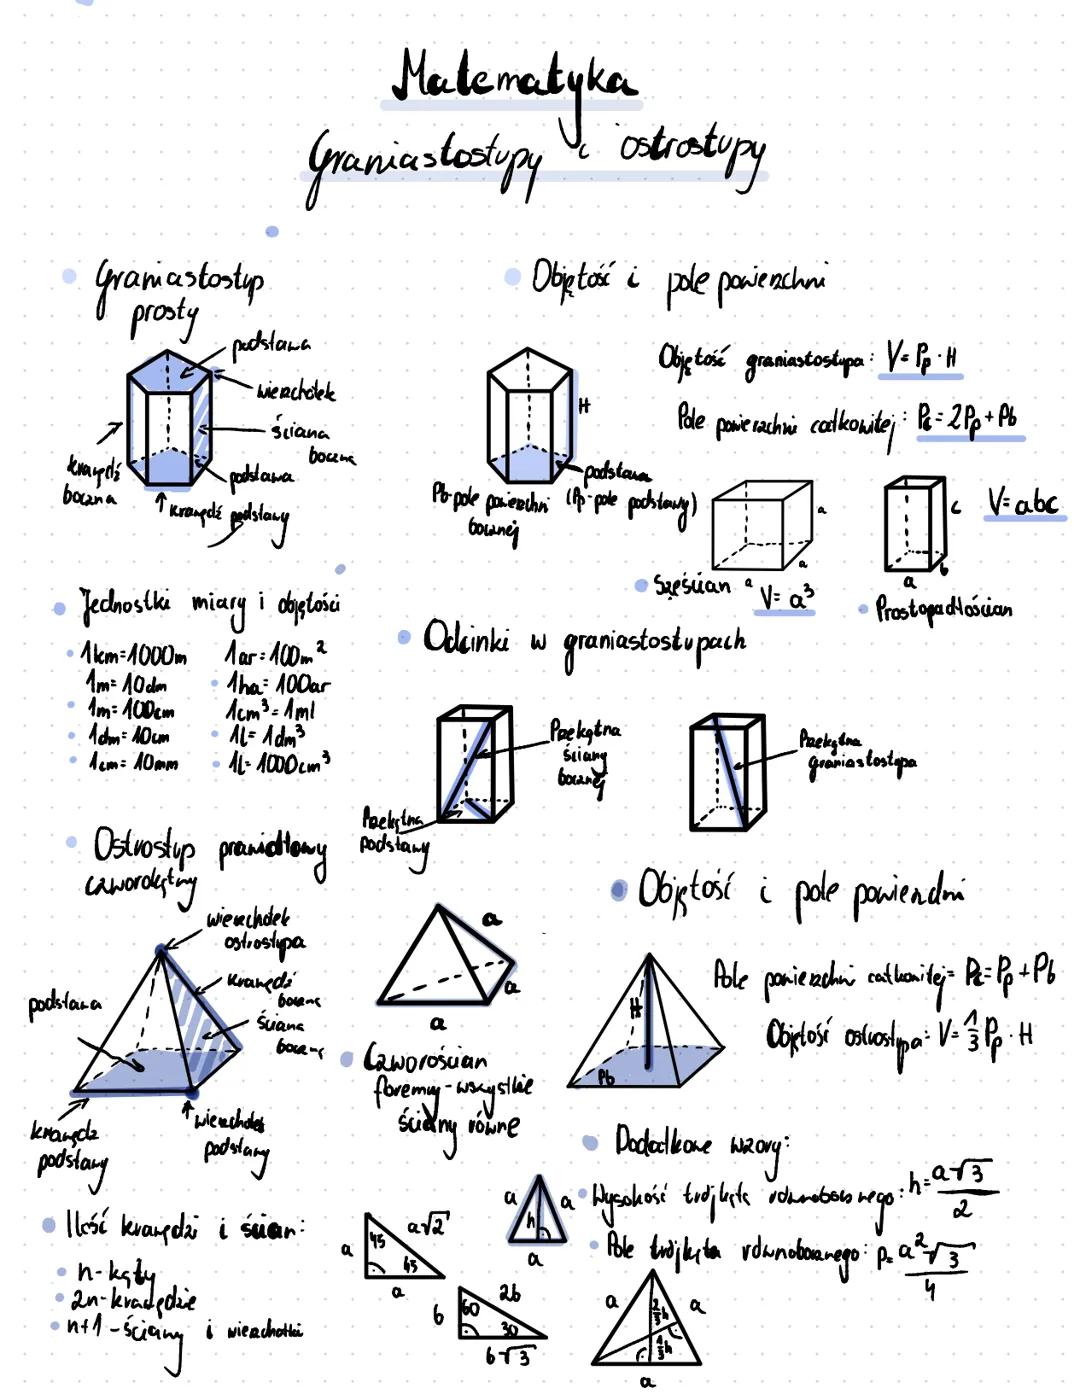 Matematyka
Graniastosłupy i ostrosłupy
Graniastosłup
prosty
podstawa
wierzchołek
ściana
boczna
podstawa
krawędź
boczna
krawędź podstawy
Objętość i pole powierzchni
H
podstawa
(Pp-pole podstawy)
Pb-pole powierzchni
bocznej
Objętość graniastosłupa: V=Pp·H
Pole powierzchni całkowitej: Pc=2Pp+Pb
a
a
a
Sześcian
V=a³
c
b
a
V=abc
Prostopadłościan
Jednostki miary i objętości
1km=1000m
1m=10dm
1m=100cm
1dm=10cm
1cm=10mm
1ar=100m²
1ha=100ar
1cm³=1ml
1l=1dm³
1l=1000cm³
Odcinki w graniastosłupach
Przekątna
ściany
bocznej
Przekątna
podstawy
Przekątna
graniastosłupa
Ostrosłup prawidłowy
czworokątny
wierzchołek
ostrosłupa
krawędź
boczna
ściana
boczna
podstawa
krawędź
podstawy
wierzchołek
podstawy
a
a
a
Czworościan
foremny-wszystkie
ściany równe
Objętość i pole powierzchni
H
Pb
Pole powierzchni całkowitej= Pc=Pp+Pb
Objętość ostrosłupa: V=1/3 Pp·H
Dodatkowe wzory:
Wysokość trójkąta równobocznego: h=a√3/2
Pole trójkąta równobocznego: p=a²√3/4
a
a
h
a
a
a
2/3h
1/3h
a
Ilość krawędzi i ścian:
n-kąty
2n-krawędzie
n+1-ściany i wierzchołki
a
45
a√2
45
a
b
60
2b
30
b√3